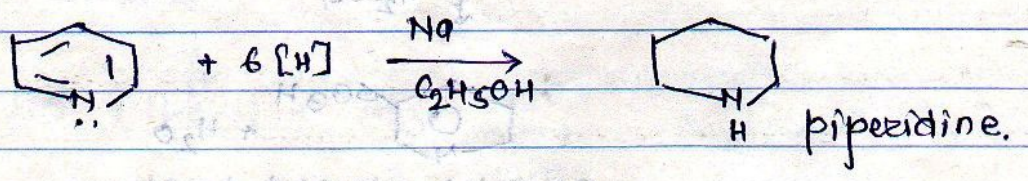 Na
+ 6 [H] → 
C₂H₅OH
N
N
H
piperidine.